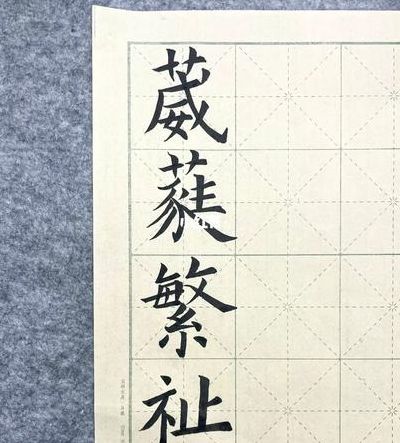 葳蕤繁祉